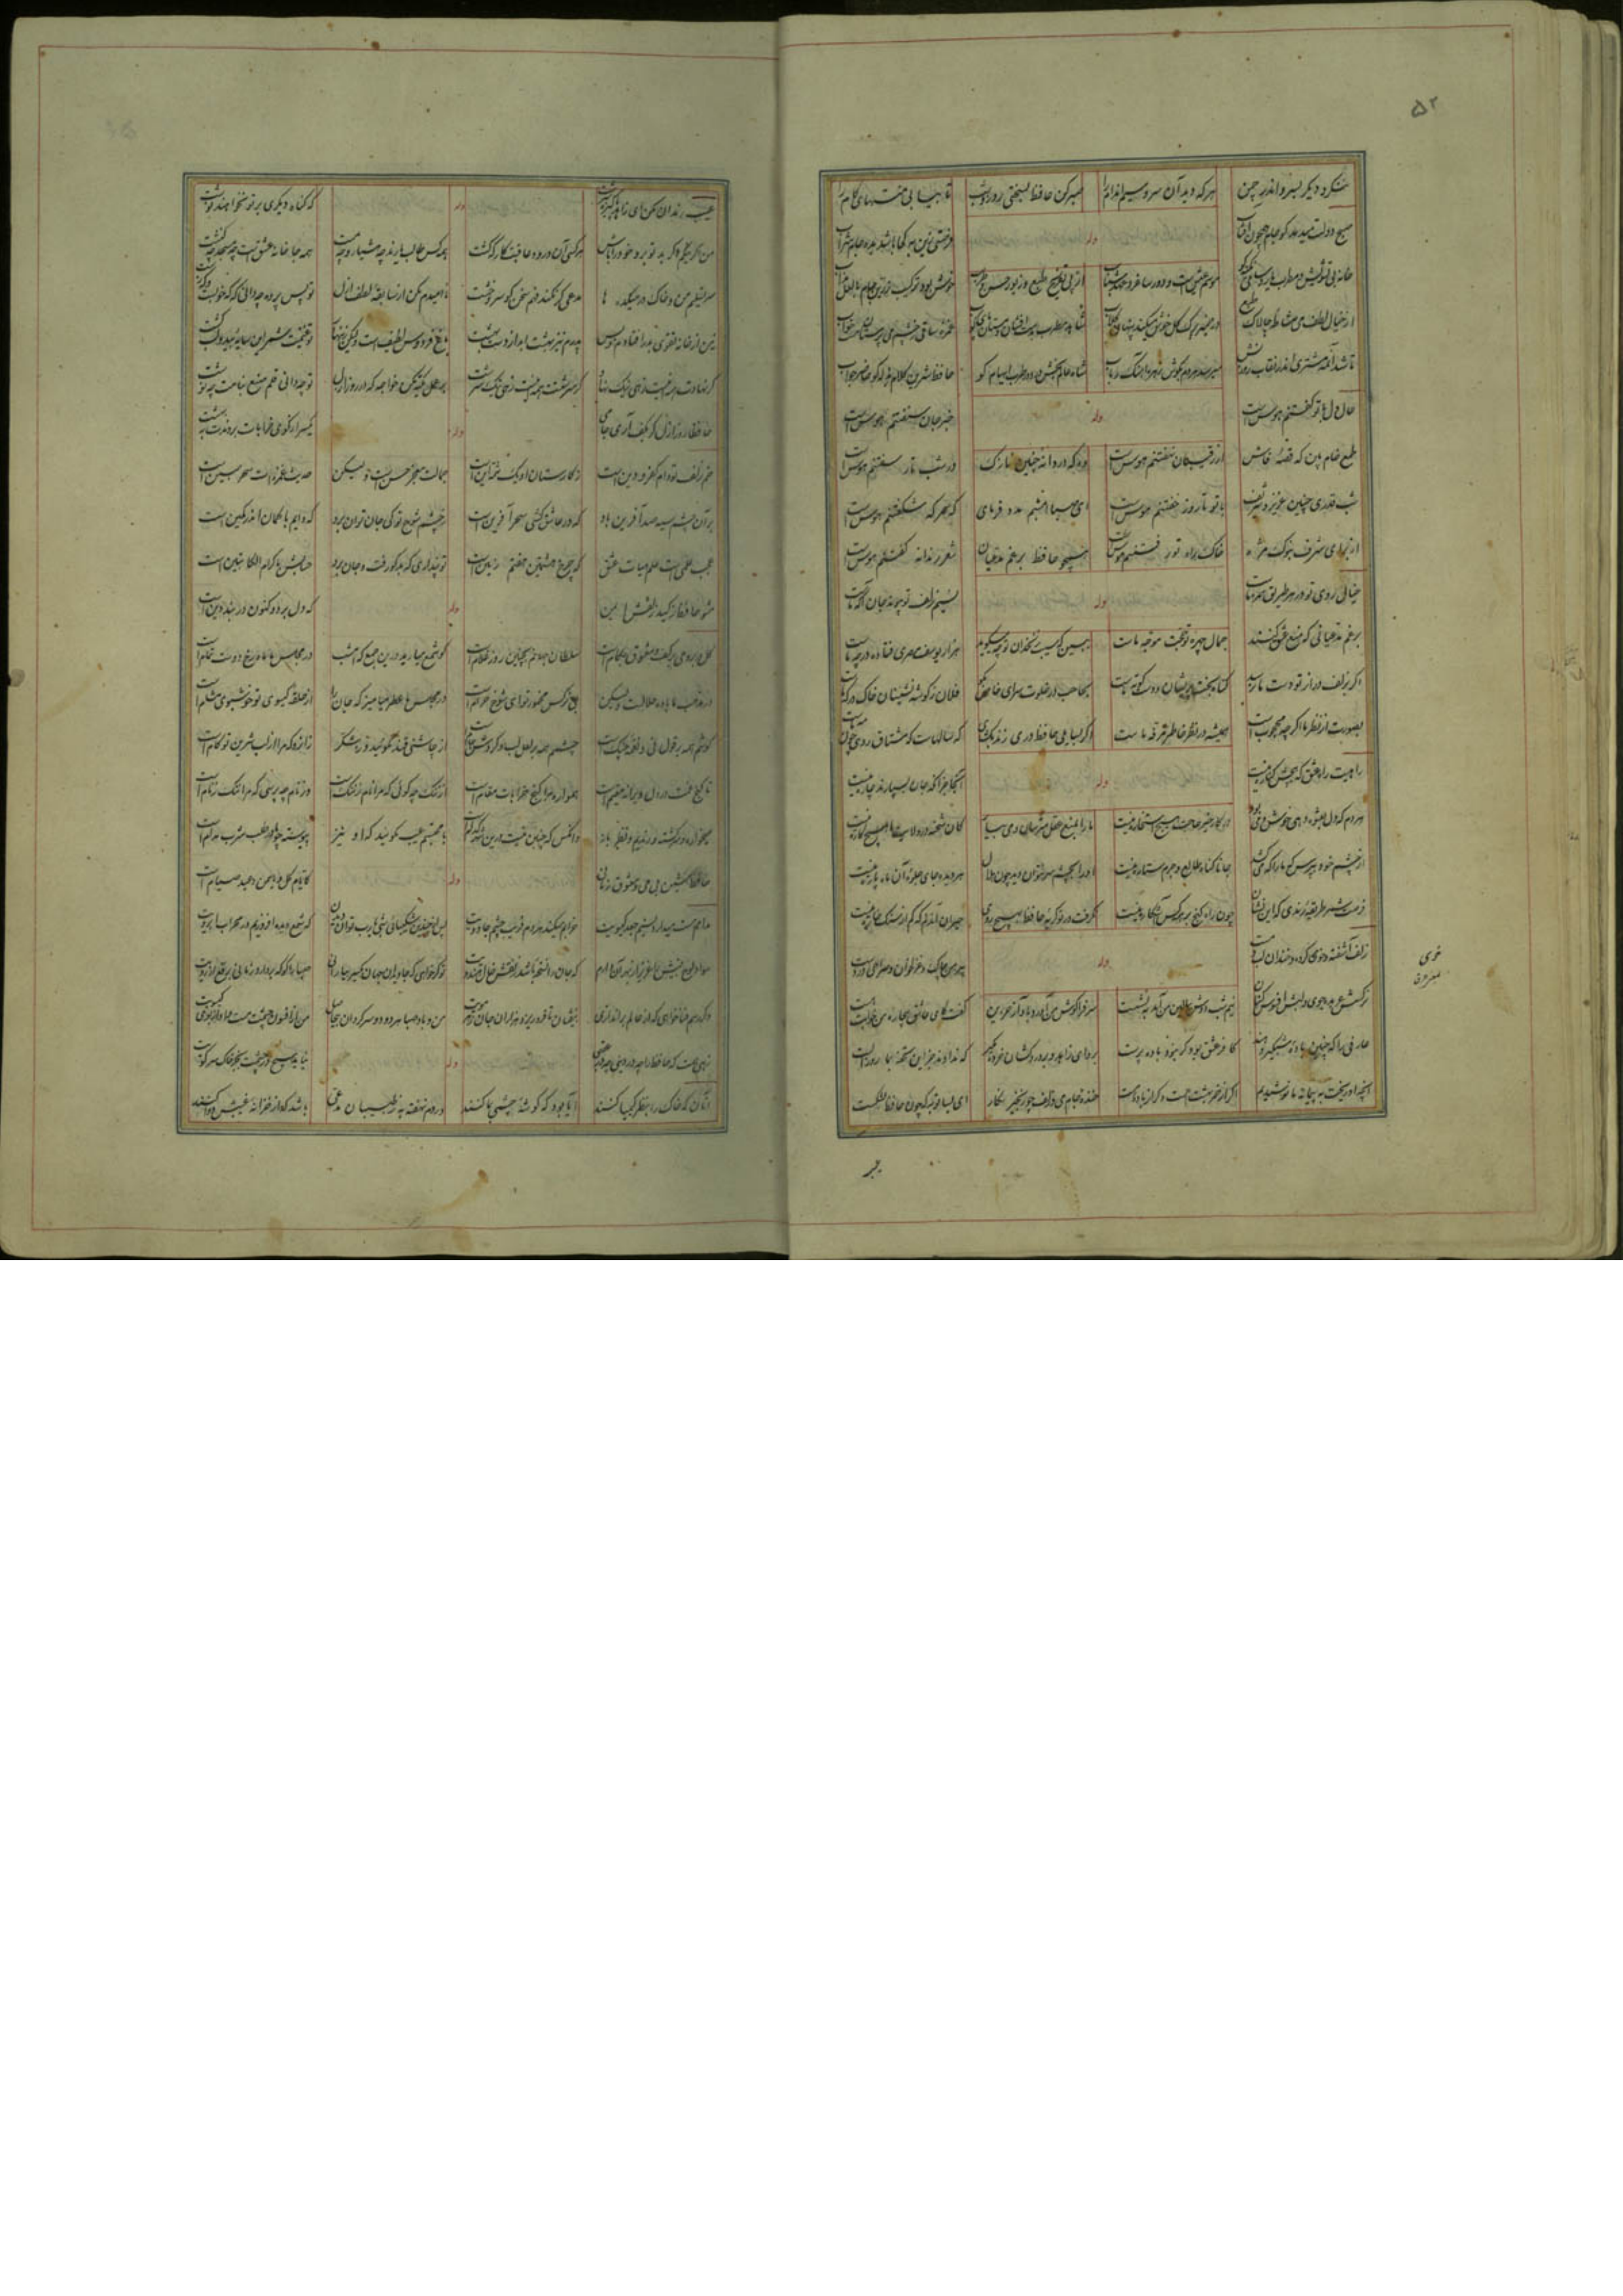 ۵۲
ننگرد دیگر بسرو اندر چمن هر که دید آن سرو سیم اندام را صبر کن حافظ بسختی روز و شب
صبح دولت میدمد کو جام همچون آفتاب وله فرصتی زین به کجا باشد بده جام شراب
خانه بی تشویش و مطرب یار و ساقی بذله گو موسم عیش است و دور ساغر و عهد شباب از پی تفریح طبع و زیور حسن طرب خوش بود ترکیب زرین جام با لعل مذاب
از خیال لطف می مشاطه چالاک طبع در ضمیر برگ گل خوش میکند پنهان گلاب شاهد و مطرب بدست افشان و مستان پای کوب غمزه ساقی ز چشم می پرستان برده خواب
تا شد آنمه مشتری میرسد هر دم بگوش زهره آهنگ رباب شاه عالم بخش در دور طرب ایهام گو حافظ شیرین کلام بذله گو حاضر جواب
حال دل با تو گفتنم هوس است وله خبر جان شنفتنم هوس است
طمع خام بین که قصه فاش از رقیبان نهفتنم هوس است وه که دردانه چنین نازک در شب تار سفتنم هوس است
شب قدری چنین عزیز و شریف با تو تا روز خفتنم هوس است ای صبا امشبم مدد فرمای که سحر که شکفتنم هوس است
از برای شرف بنوک مژه خاک راه تو رفتنم هوس است همچو حافظ برغم مدعیان شعر رندانه گفتنم هوس است
خیال روی تو در هر طریق همره ماست وله نسیم زلف تو پیوند جان آگه ماست
برغم مدعیانی که منع عشق کنند جمال چهره تو حجت موجه ماست ببین که سیب زنخدان تو چه میگوید هزار یوسف مصری فتاده در چه ماست
اگر بزلف دراز تو دست ما نرسد گناه بخت پریشان و دست کوته ماست بحاجب در خلوت سرای خاص بگو فلان ز گوشه نشینان خاک درگه ماست
بصورت از نظر ما اگر چه محجوب است همیشه در نظر خاطر مرفه ماست اگر بسالی حافظ دری زند بگشای که سالهاست که مشتاق روی چون مه ماست
راهیست راه عشق که هیچش کناره نیست وله آنجا جز آنکه جان بسپارند چاره نیست
هر دم که دل بعشق دهی خوش دمی بود در کار خیر حاجت هیچ استخاره نیست ما را بمنع عقل مترسان و می بیار کان شحنه در ولایت ما هیچ کاره نیست
از چشم خود بپرس که ما را که میکشد جانا گناه طالع و جرم ستاره نیست او را بچشم سر نتوان دید چون هلال هر دیده جای جلوه آن ماه پاره نیست
فرصت شمر طریقه رندی که این نشان چون راه گنج بر همه کس آشکاره نیست نگرفت در تو گریه حافظ بهیچ روی حیران آن دلم که کم از سنگ خاره نیست
زلف آشفته و خوی کرده و خندان لب و مست وله پیرهن چاک و غزلخوان و صراحی در دست
نرگسش عربده جوی و لبش افسوس کنان نیم شب دوش ببالین من آمد بنشست سر فرا گوش من آورد و باواز حزین گفت کای عاشق بیچاره من خوابت هست
عارفی را که چنین باده شبگیر دهند کافر عشق بود گر نبود باده پرست برو ای زاهد و بر دردکشان خرده مگیر که ندادند جز این تحفه بما روز الست
آنچه او ریخت به پیمانه ما نوشیدیم اگر از خمر بهشت است و گر از باده مست خنده جام می و زلف گره گیر نگار ای بسا توبه که چون توبه حافظ بشکست
خوی
عیب رندان مکن ای زاهد پاکیزه سرشت وله که گناه دیگری بر تو نخواهند نوشت
من اگر نیکم و گر بد تو برو خود را باش هر کسی آن درود عاقبت کار که کشت همه کس طالب یارند چه هشیار و چه مست همه جا خانه عشق است چه مسجد چه کنشت
سر تسلیم من و خاک در میکده ها مدعی گر نکند فهم سخن گو سر و خشت نا امیدم مکن از سابقه لطف ازل تو پس پرده چه دانی که که خوبست و که زشت
نه من از خانه تقوی بدر افتادم و بس پدرم نیز بهشت ابد از دست بهشت باغ فردوس لطیف است ولیکن زنهار تو غنیمت شمر این سایه بید و لب کشت
گر نهادت همه اینست زهی نیک نهاد ور سرشتت همه اینست زهی نیک سرشت بر عمل تکیه مکن خواجه که در روز ازل تو چه دانی قلم صنع بنامت چه نوشت
حافظا روز ازل گر بکف آری جامی وله یکسر از کوی خرابات برندت به بهشت
خم زلف تو دام کفر و دین است ز کارستان او یک شمه این است جمالت معجز حسن است ولیکن حدیث غمزه ات سحر مبین است
بر آن چشم سیه صد آفرین باد که در عاشق کشی سحر آفرین است ز چشم شوخ تو کی جان توان برد که دایم با کمان اندر کمین است
عجب علمی است علم هیات عشق که چرخ هشتمش هفتم زمین است تو پنداری که بدگو رفت و جان برد حسابش با کرام الکاتبین است
مشو حافظ ز کید زلفش ایمن وله که دل برد و کنون در بند دین است
گل در بر و می بر کف و معشوق بکام است سلطان جهانم بچنین روز غلام است گو شمع میارید درین جمع که امشب در مجلس ما ماه رخ دوست تمام است
در مذهب ما باده حلال است ولیکن در مجلس ما عطر میامیز که جان را از حلقه گیسوی تو خوشبوی مشام است
گوشم همه بر قول نی و نغمه چنگ است چشمم همه بر لعل لب و گردش جام است از چاشنی قند مگوئید و ز شکر زانرو که مرا از لب شیرین تو کام است
تا گنج غمت در دل ویرانه مقیم است همواره مرا کنج خرابات مقام است از ننگ چه گوئی که مرا نام ز ننگ است وز نام چه پرسی که مرا ننگ ز نام است
میخواره و سرگشته و رندیم و نظر باز وانکس که چو ما نیست درین شهر کدام است با محتسبم عیب مگوئید که او نیز پیوسته چو ما در طلب شرب مدام است
حافظ منشین بی می و معشوق زمانی وله کایام گل و یاسمن و عید صیام است
مدامم مست میدارد نسیم جعد گیسویت خرابم میکند هر دم فریب چشم جادویت پس از چندین شکیبائی شبی یارب توان دیدن که شمع دیده افروزیم در محراب ابرویت
سواد لوح بینش را عزیز از بهر آن دارم که جان را نسخه باشد ز نقش خال هندویت تو گر خواهی که جاویدان جهان یکسر بیارائی صبا را گو که بردارد زمانی برقع از رویت
و گر رسم فنا خواهی که از عالم براندازی بیفشان تا فرو ریزد هزاران جان ز هر مویت من و باد صبا هر دو دو سرگردان بیحاصل من از افسون چشمت مست و او از بوی گیسویت
وله
آنان که خاک را بنظر کیمیا کنند آیا بود که گوشه چشمی بما کنند دردم نهفته به ز طبیبان مدعی باشد که از خزانه غیبش دوا کنند